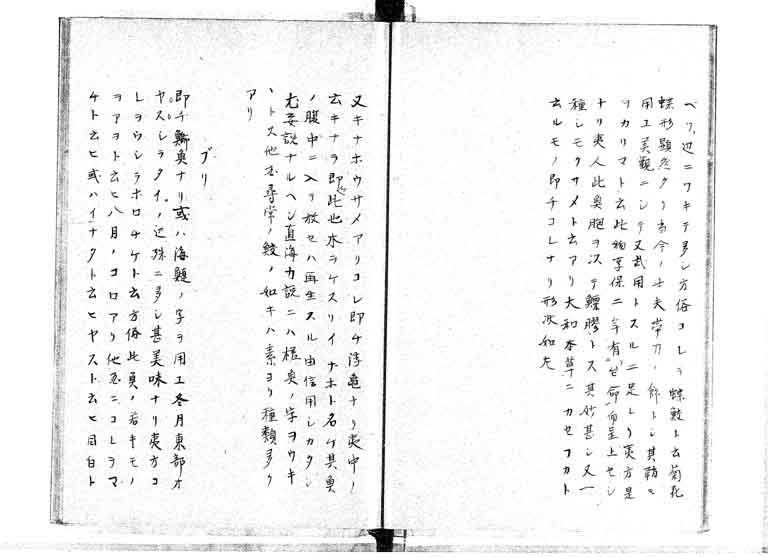 ベツ辺ニワキテ多シ方俗コレヲ蝶鮫ト云菊花
蝶形顕然タリ当今ノ士夫帯刀ノ飾トシ其鞘ニ
用エ美観ニシテ又武用トスルニ足レリ夷方是
ヲカリマト云此物享保二年有台命而呈上セシ
ナリ夷人此魚胞ヲ以テ鰾膠トス其妙甚シ又一
種シモクサメト云アリ大和本草ニカセフカト
云ルモノ即チコレナリ形状如左
又キナホウサメアリコレ即チ浮亀ナリ夷中ノ
云キナラ即此也水ラケスリイナホト名ケ其魚
ノ腹中ニ入リ放セハ再生スル由信用シカタシ
尤妄説ナルヘシ直海力説ニハ楂魚ノ字ヲウキ
トス他至尋常ノ鮫ノ如キハ素ヨリ種類多ク
アリ
ブリ
即チ鰤魚ナリ或ハ海鰱ノ字ヲ用エ冬月東部オ
ヤスシラタイノ辺殊ニ多シ甚美味ナリ夷方コ
レヲウシラホロチケト云方俗此魚ノ若キモノ
ヲアヲト云ヒ八月ノコロアリ他邑ニコレラマ
ケト云ヒ或ハイナタト云ヒヤスト云ヒ目白ト